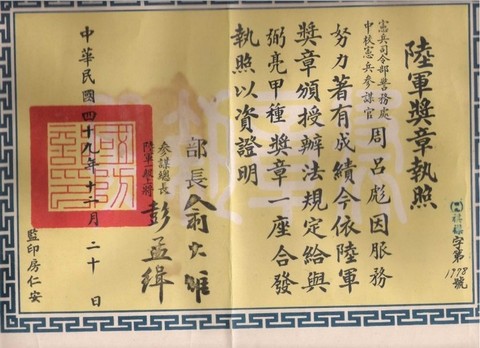 陸軍獎章執照
憲兵司令部警務處
中校憲兵參謀官
周呂彪因服務
努力著有成績今依陸軍
獎章頒授辦法規定給與
弼亮甲種獎章一座合發
執照以資證明
部長俞大維
參謀總長
陸軍一級上將
彭孟緝
中華民國四十九年十二月二十日
監印房仁安
字第1798號